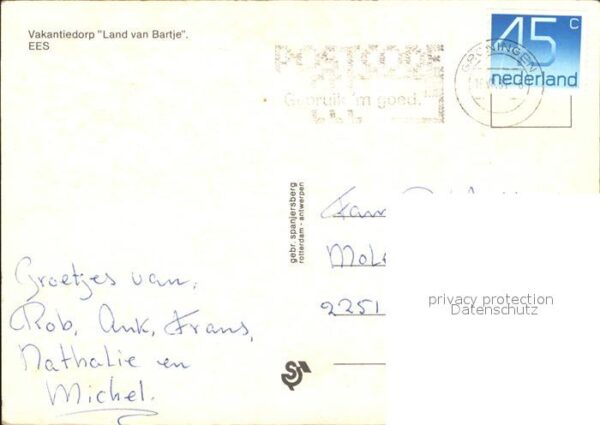 Vakantiedorp "Land van Bartje".
EES
Gebruik 'm goed.
GRONINGEN
45 c
nederland
gebr. spanjersberg
rotterdam - antwerpen
Fam
2251
privacy protection
Datenschutz
Groetjes van,
Rob, Ank, Frans,
Nathalie en
Michel.